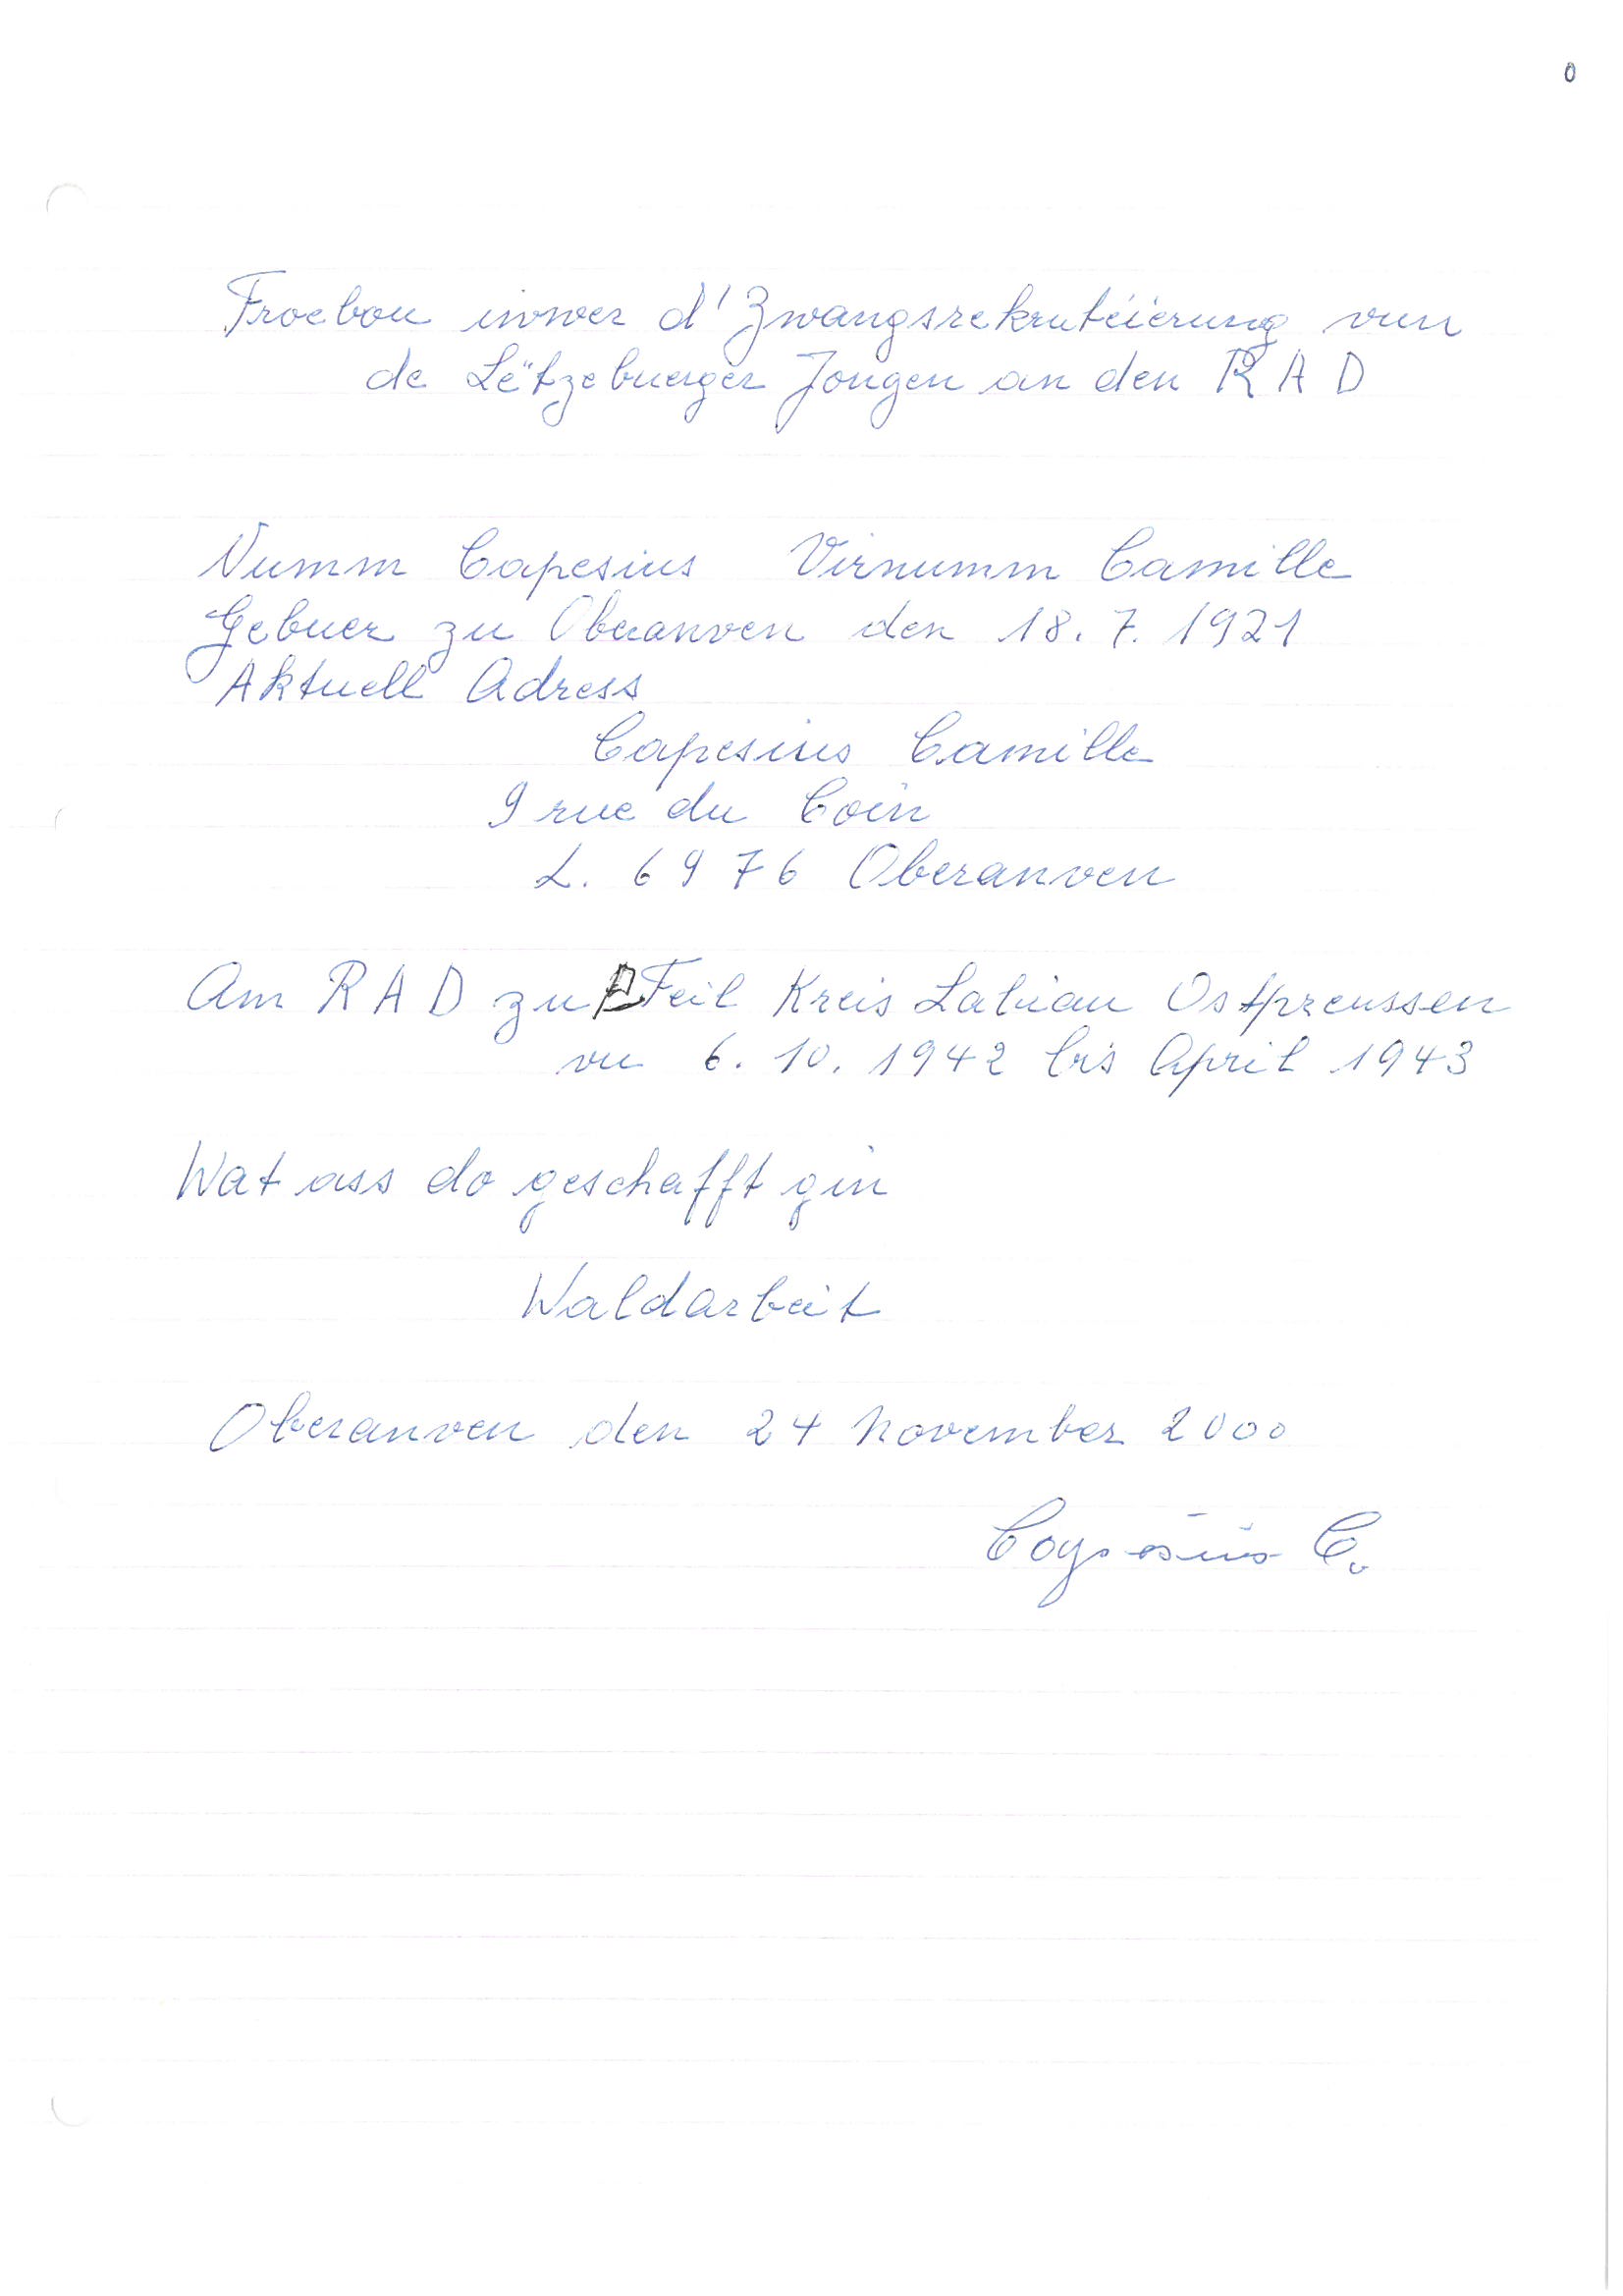 0
Froebou iwwer d'Zwangsrekrutéierung vun
de Lëtzebuerger Jongen an den R A D
Numm Capesius Virnumm Camille
Gebuer zu Oberanven den 18. 7. 1921
Aktuell Adress
Capesius Camille
9 rue du Coin
L. 6976 Oberanven
Am R A D zu Feil Kreis Labiau Ostpreussen
vu 6. 10. 1942 bis April 1943
Wat ass do geschafft gin
Waldarbeit
Oberanven den 24 November 2000
Capesius C.